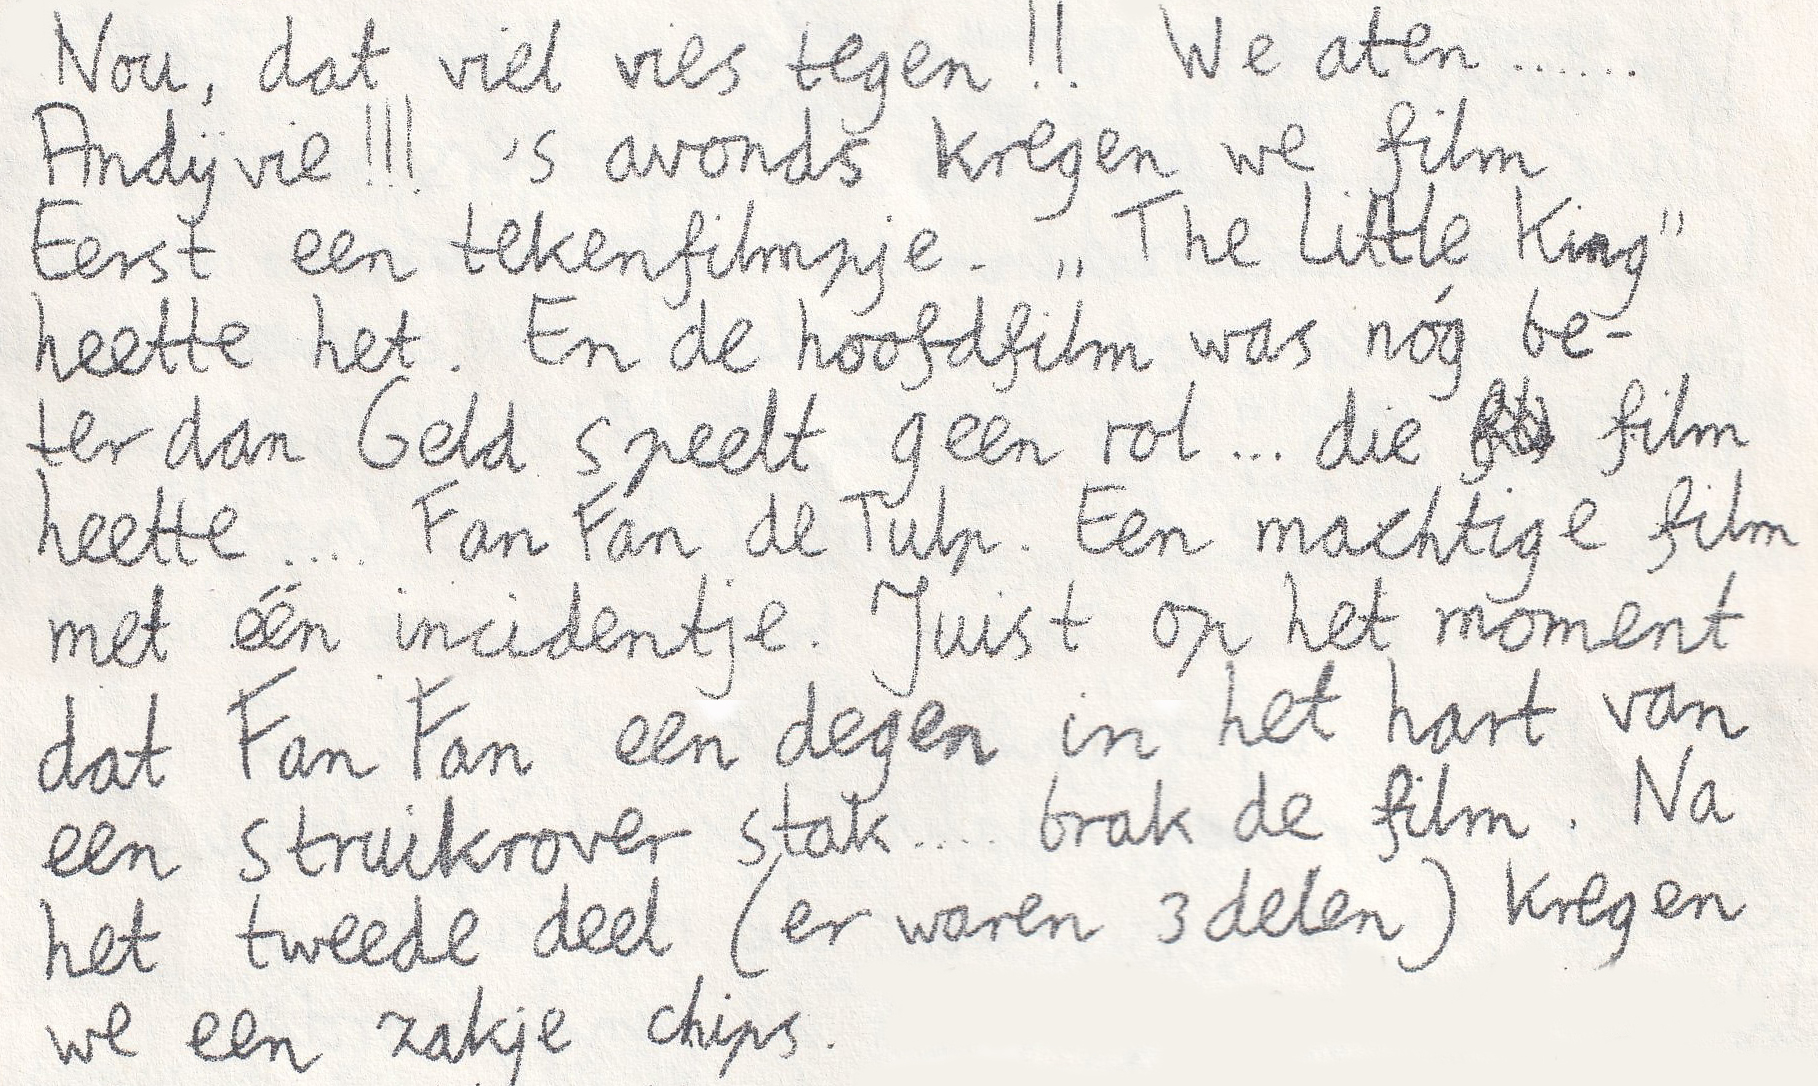 Nou, dat viel vies tegen!! We aten......
Andijvie!!! 's avonds kregen we film
Eerst een tekenfilmpje. „The Little King"
heette het. En de hoofdfilm was nóg be-
ter dan Geld speelt geen rol... die film
heette .... Fan Fan de Tulp. Een machtige film
met één incidentje. Juist op het moment
dat Fan Fan een degen in het hart van
een struikrover stak.... brak de film. Na
het tweede deel (er waren 3 delen) kregen
we een zakje chips.